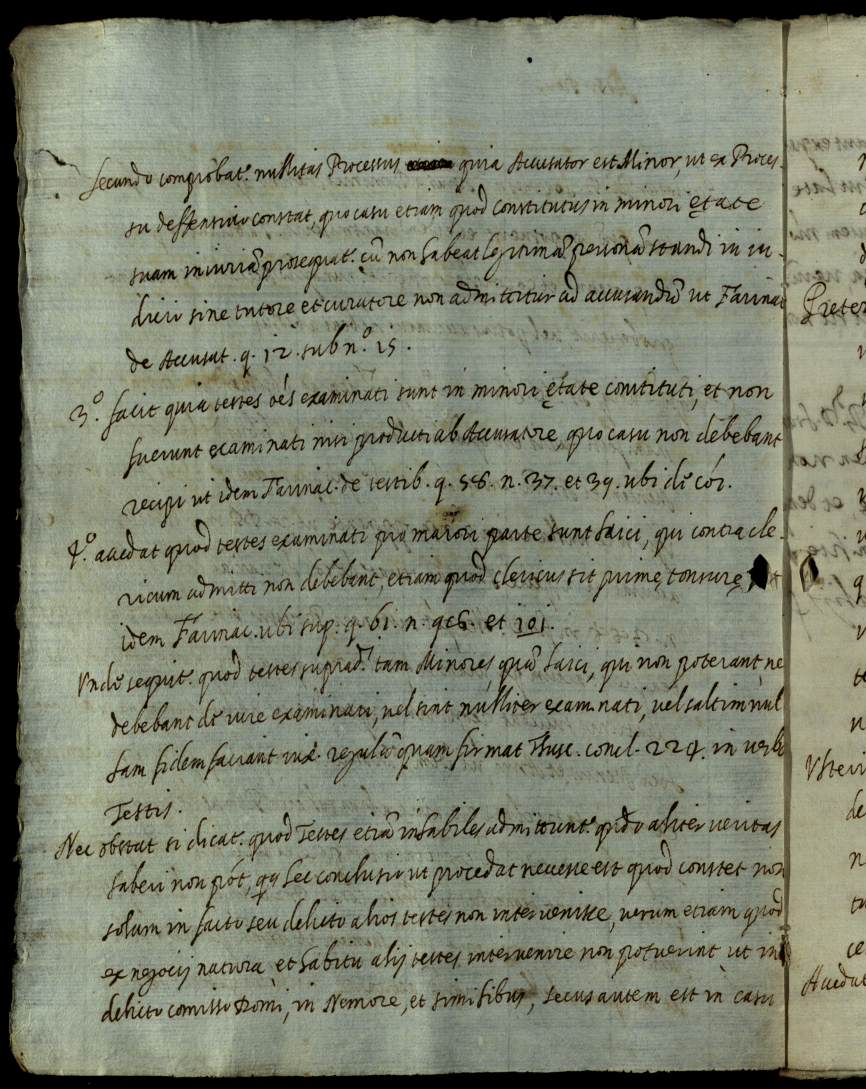 Secundo comprobat.r nullitas Processus quia Accusator est Minor, ut ex Proces-
su deffensivo constat, quo casu etiam quod constitutus in minori ętate
suam iniuriā prosequat.r cū non habeat legitimā personā standi in iu-
dicio sine tutore et curatore non admittitur ad accusandū ut Farinac
de Accusat. q. 12. sub n.º 15.
3.º facit quia testes oēs examinati sunt in minori ętate constituti, et non
fuerunt examinati nisi producti ab Accusatore, quo casu non debebant
recipi ut idem Farinac. de testib. q. 56. n. 37. et 39. ubi de cōi.
4.º accedat quod testes examinati pro maiori parte sunt laici, qui contra cle-
ricum admitti non debebant, etiam quod clericus sit primę tonsurę,
idem Farinac. ubi sup. q. 61. n. 96. et 101.
Unde sequit.r quod testes suprad.i tam Minores quā laici, qui non poterant ne
debebant de iure examinari, vel sint nulliter examinati, vel saltim nul
lam fidem faciant iux. regulā quam firmat Thusc. concl. 224. in verb
Testis.
Nec obstat si dicat.r quod Testes etiā inhabiles admittunt.r qndo aliter veritas
haberi non pōt, qa hec conclusio ut procedat necesse est quod constet non
solum in facto seu delicto alios testes non intervenisse, verum etiam quod
ex negocij natura et habitu alij testes intervenire non potuerint ut in
delicto comisso Domi, in Nemore, et similibus, secus autem est in casu